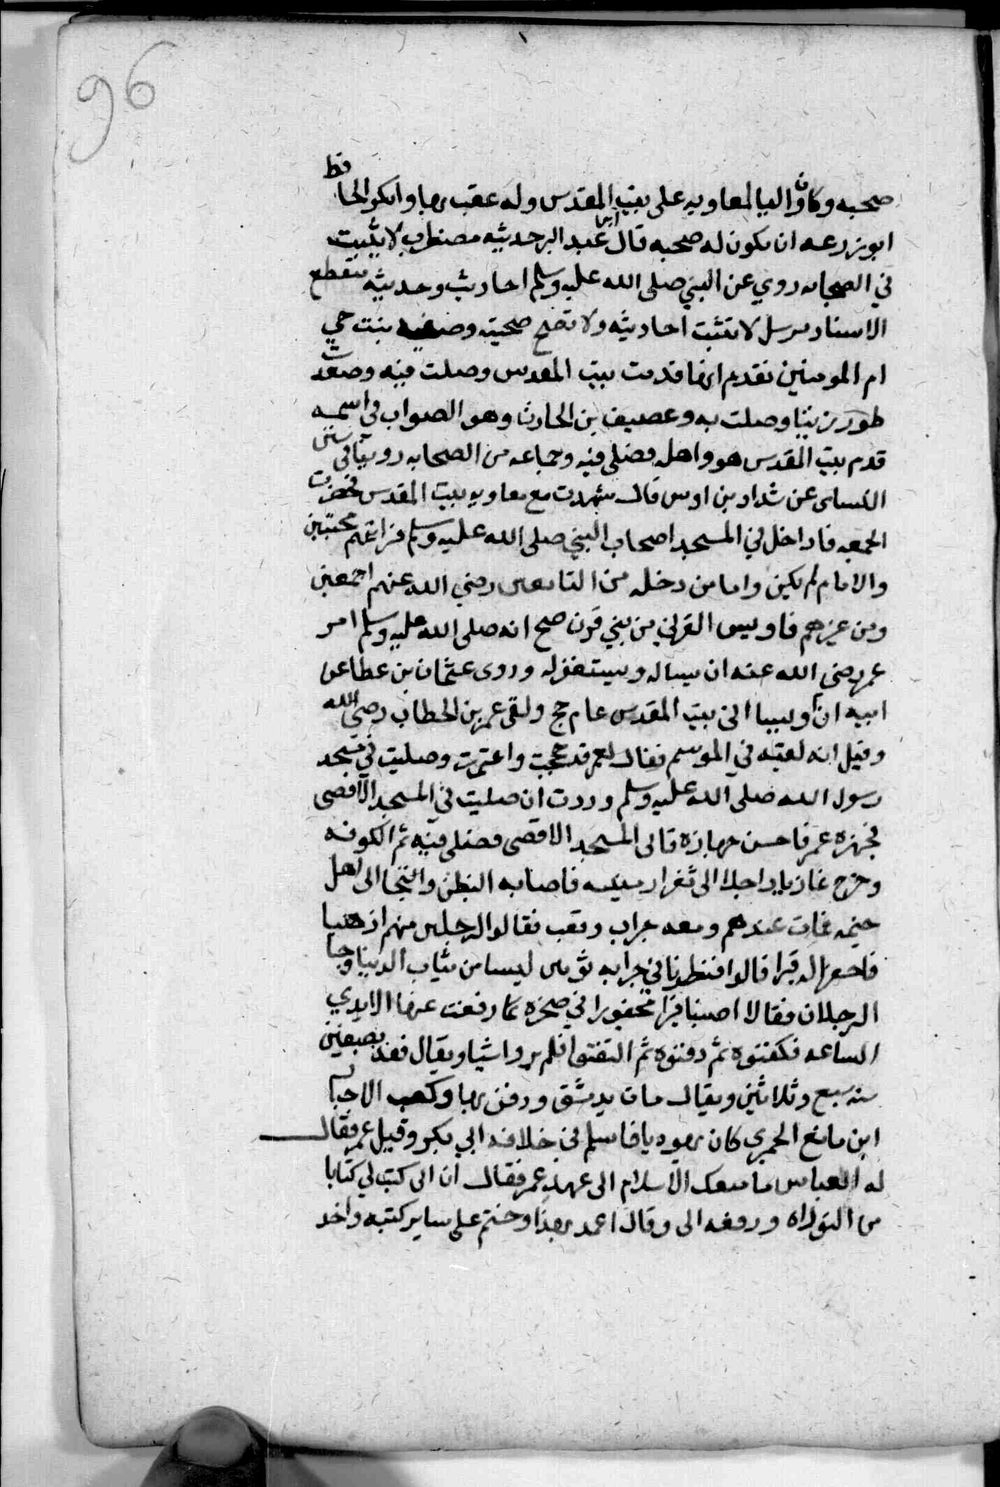 96
صحبه وكان واليا لمعاويه على بيت المقدس وله عقب بها وانكر الحافظ
ابو زرعه ان يكون له صحبه قال ابن عبد البر حديثه مضطرب لا يثبت
في الصحابه روي عن النبي صلى الله عليه وسلم احاديث وحديثه منقطع
الاسناد مرسل لا تثبت احاديثه ولا تصح صحبته وصفيه بنت حيي
ام المومنين تقديم انها قدمت بيت المقدس وصلت فيه وصعدت
طور زيتا وصلت به وعصيف بن الحارث وهو الصواب في اسمه
قدم بيت المقدس هو واهله فصلى فيه وجماعه من الصحابه روينا في سنن
النساى عن شداد بن اوس قال شهدت مع معاويه بيت المقدس فحضرت
الجمعه فاذا جل في المسجد اصحاب النبي صلى الله عليه وسلم فرايتهم محتبين
والامام لم يكن واما من دخله من التابعين رضي الله عنهم اجمعين
ومن غيرهم فاويس القرني من بني قرن صح انه صلى الله عليه وسلم امر
عمر رضى الله عنه ان يساله ويستغفر له وروى عثمان بن عطا عن
ابيه ان اويسا اتى بيت المقدس عام حج ولقى عمر بن الخطاب رضي الله
وقيل انه لقيه في الموسم فقال لعمر قد حججت واعتمرت وصليت في مسجد
رسول الله صلى الله عليه وسلم وددت ان صليت في المسجد الاقصى
فجهزه عمر فاحسن جهازه فاتى المسجد الاقصى فصلى فيه ثم الكوفه
وخرج غازيا راجلا الى ثغر ارمينيه فاصابه البطن والتجا الى اهل
خيمه فمات عندهم ومعه جراب وقعب فقالوا لرجلين منهم اذهبا
فاحفرا له قبرا قالوا فنظرنا في جرابه ثوبين ليسا من ثياب الدنيا وجا
الرجلان فقالا اصبنا قبرا محفورا في صخره كما رفعت عنها الايدي
الساعه فكفنوه ثم دفنوه ثم التفتوا فلم يروا شيا ويقال فقد بصفين
سنه سبع وثلاثين ويقال مات بدمشق ودفن بها وكعب الاحبار
ابن مانع الحميري كان يهوديا فاسلم في خلافه ابي بكر وقيل عمر فقال
له العباس ما منعك الاسلام الى عهد عمر فقال ان ابى كتب لي كتابا
من التوراه ودفعه الى وقال اعمد بهذا وختم على ساير كتبه واخد